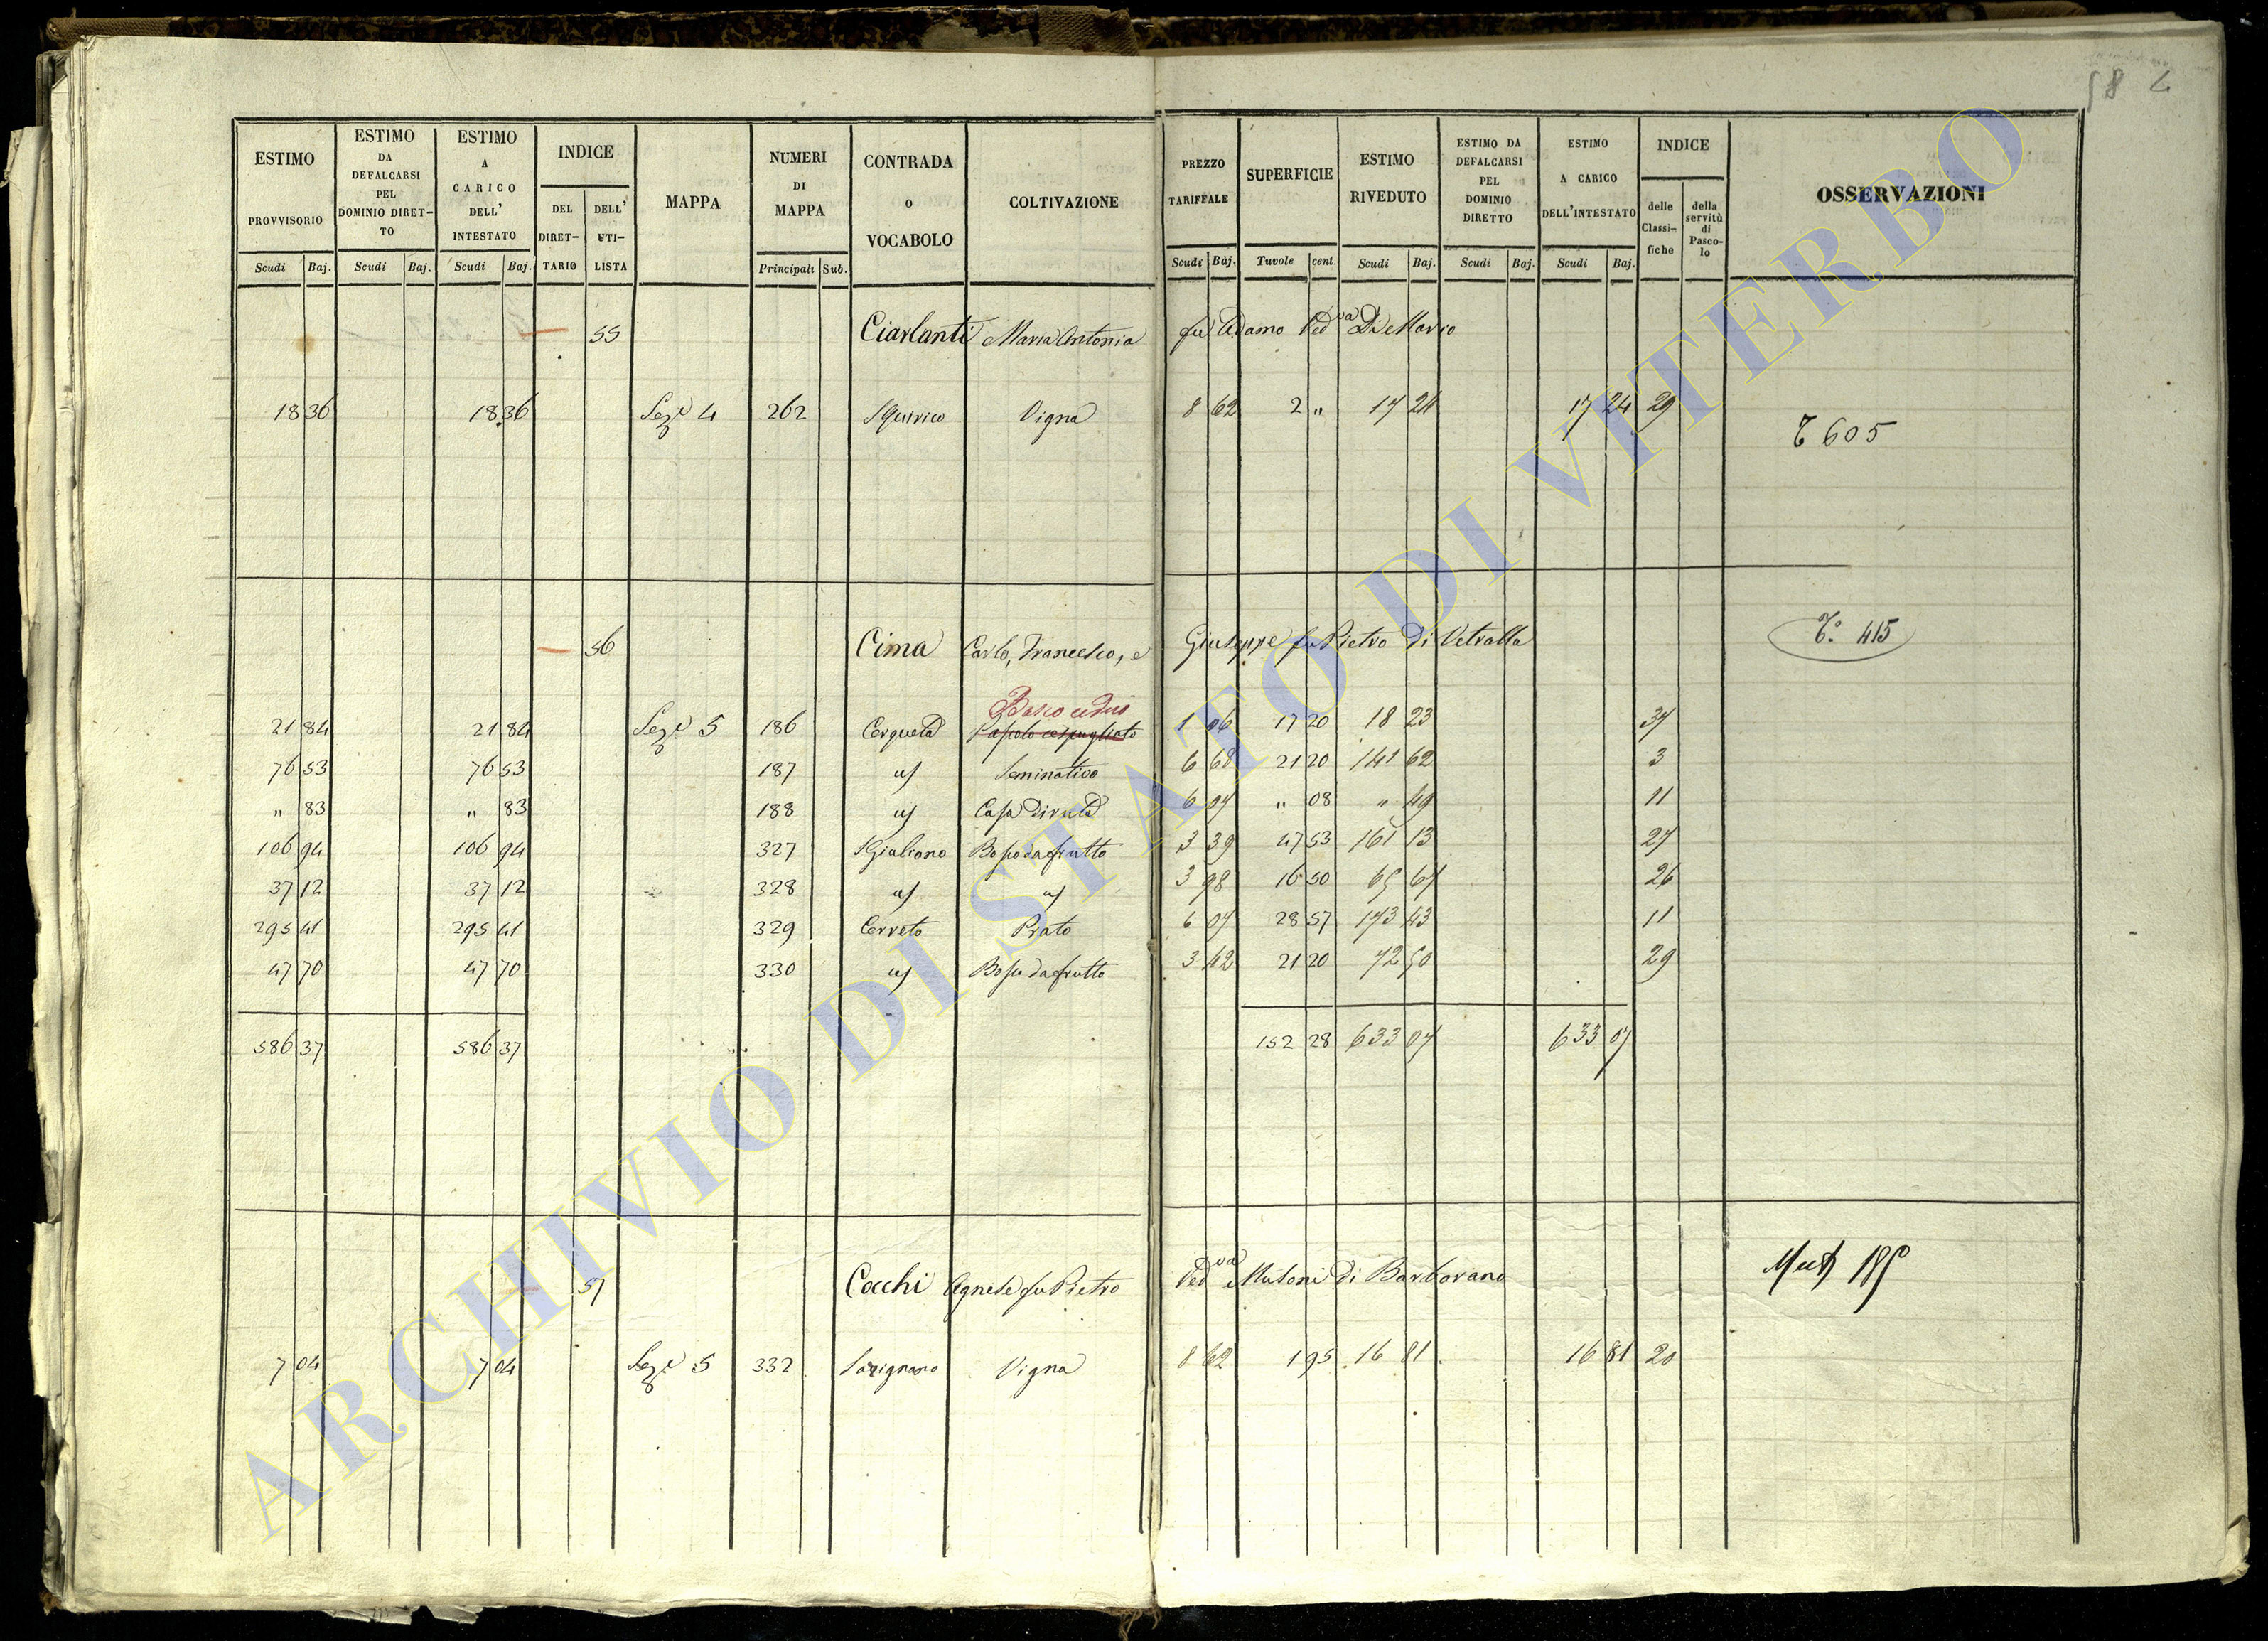 58
ESTIMO PROVVISORIO Scudi Baj.
ESTIMO DA DEFALCARSI PEL DOMINIO DIRET-TO Scudi Baj.
ESTIMO A CARICO DELL' INTESTATO Scudi Baj.
INDICE DEL DIRET-TARIO DELL' UTI-LISTA
MAPPA
NUMERI DI MAPPA Principali Sub.
CONTRADA o VOCABOLO
COLTIVAZIONE
PREZZO TARIFFALE Scudi Baj.
SUPERFICIE Tavole cent.
ESTIMO RIVEDUTO Scudi Baj.
ESTIMO DA DEFALCARSI PEL DOMINIO DIRETTO Scudi Baj.
ESTIMO A CARICO DELL'INTESTATO Scudi Baj.
INDICE delle Classi-fiche della servitù di Pasco-lo
OSSERVAZIONI
55 Ciarlanti Maria Antonia fu Adamo Ved.va Di Mario
18 36 18 36 Sez.e 4 262 S Quirico Vigna 8 62 2 " 17 24 17 24 29
T 605
56 Cima Carlo, Francesco, e Giuseppe fu Pietro di Vetralla T.o 415
Bosco ceduo
21 84 21 84 Sez.e 5 186 Cerqueta Pascolo cespugliato 1 06 17 20 18 23 34
76 53 76 53 187 a/ Seminativo 6 68 21 20 141 62 3
" 83 " 83 188 a/ Casa diruta 6 07 " 08 " 49 11
106 94 106 94 327 S Giuliano Bosco da frutto 3 39 47 53 161 13 27
37 12 37 12 328 a/ a/ 3 98 16 50 65 67 26
295 41 295 41 329 Cerreto Prato 6 07 28 57 173 43 11
47 70 47 70 330 a/ Bosco da frutto 3 42 21 20 72 50 29
586 37 586 37 152 28 633 07 633 07
57 Cocchi Agnese fu Pietro Ved.va Mutoni di Barbarano
7 04 7 04 Sez.e 5 332 Sarignano Vigna 8 62 1 95 16 81 16 81 20
ARCHIVIO DI STATO DI VITERBO